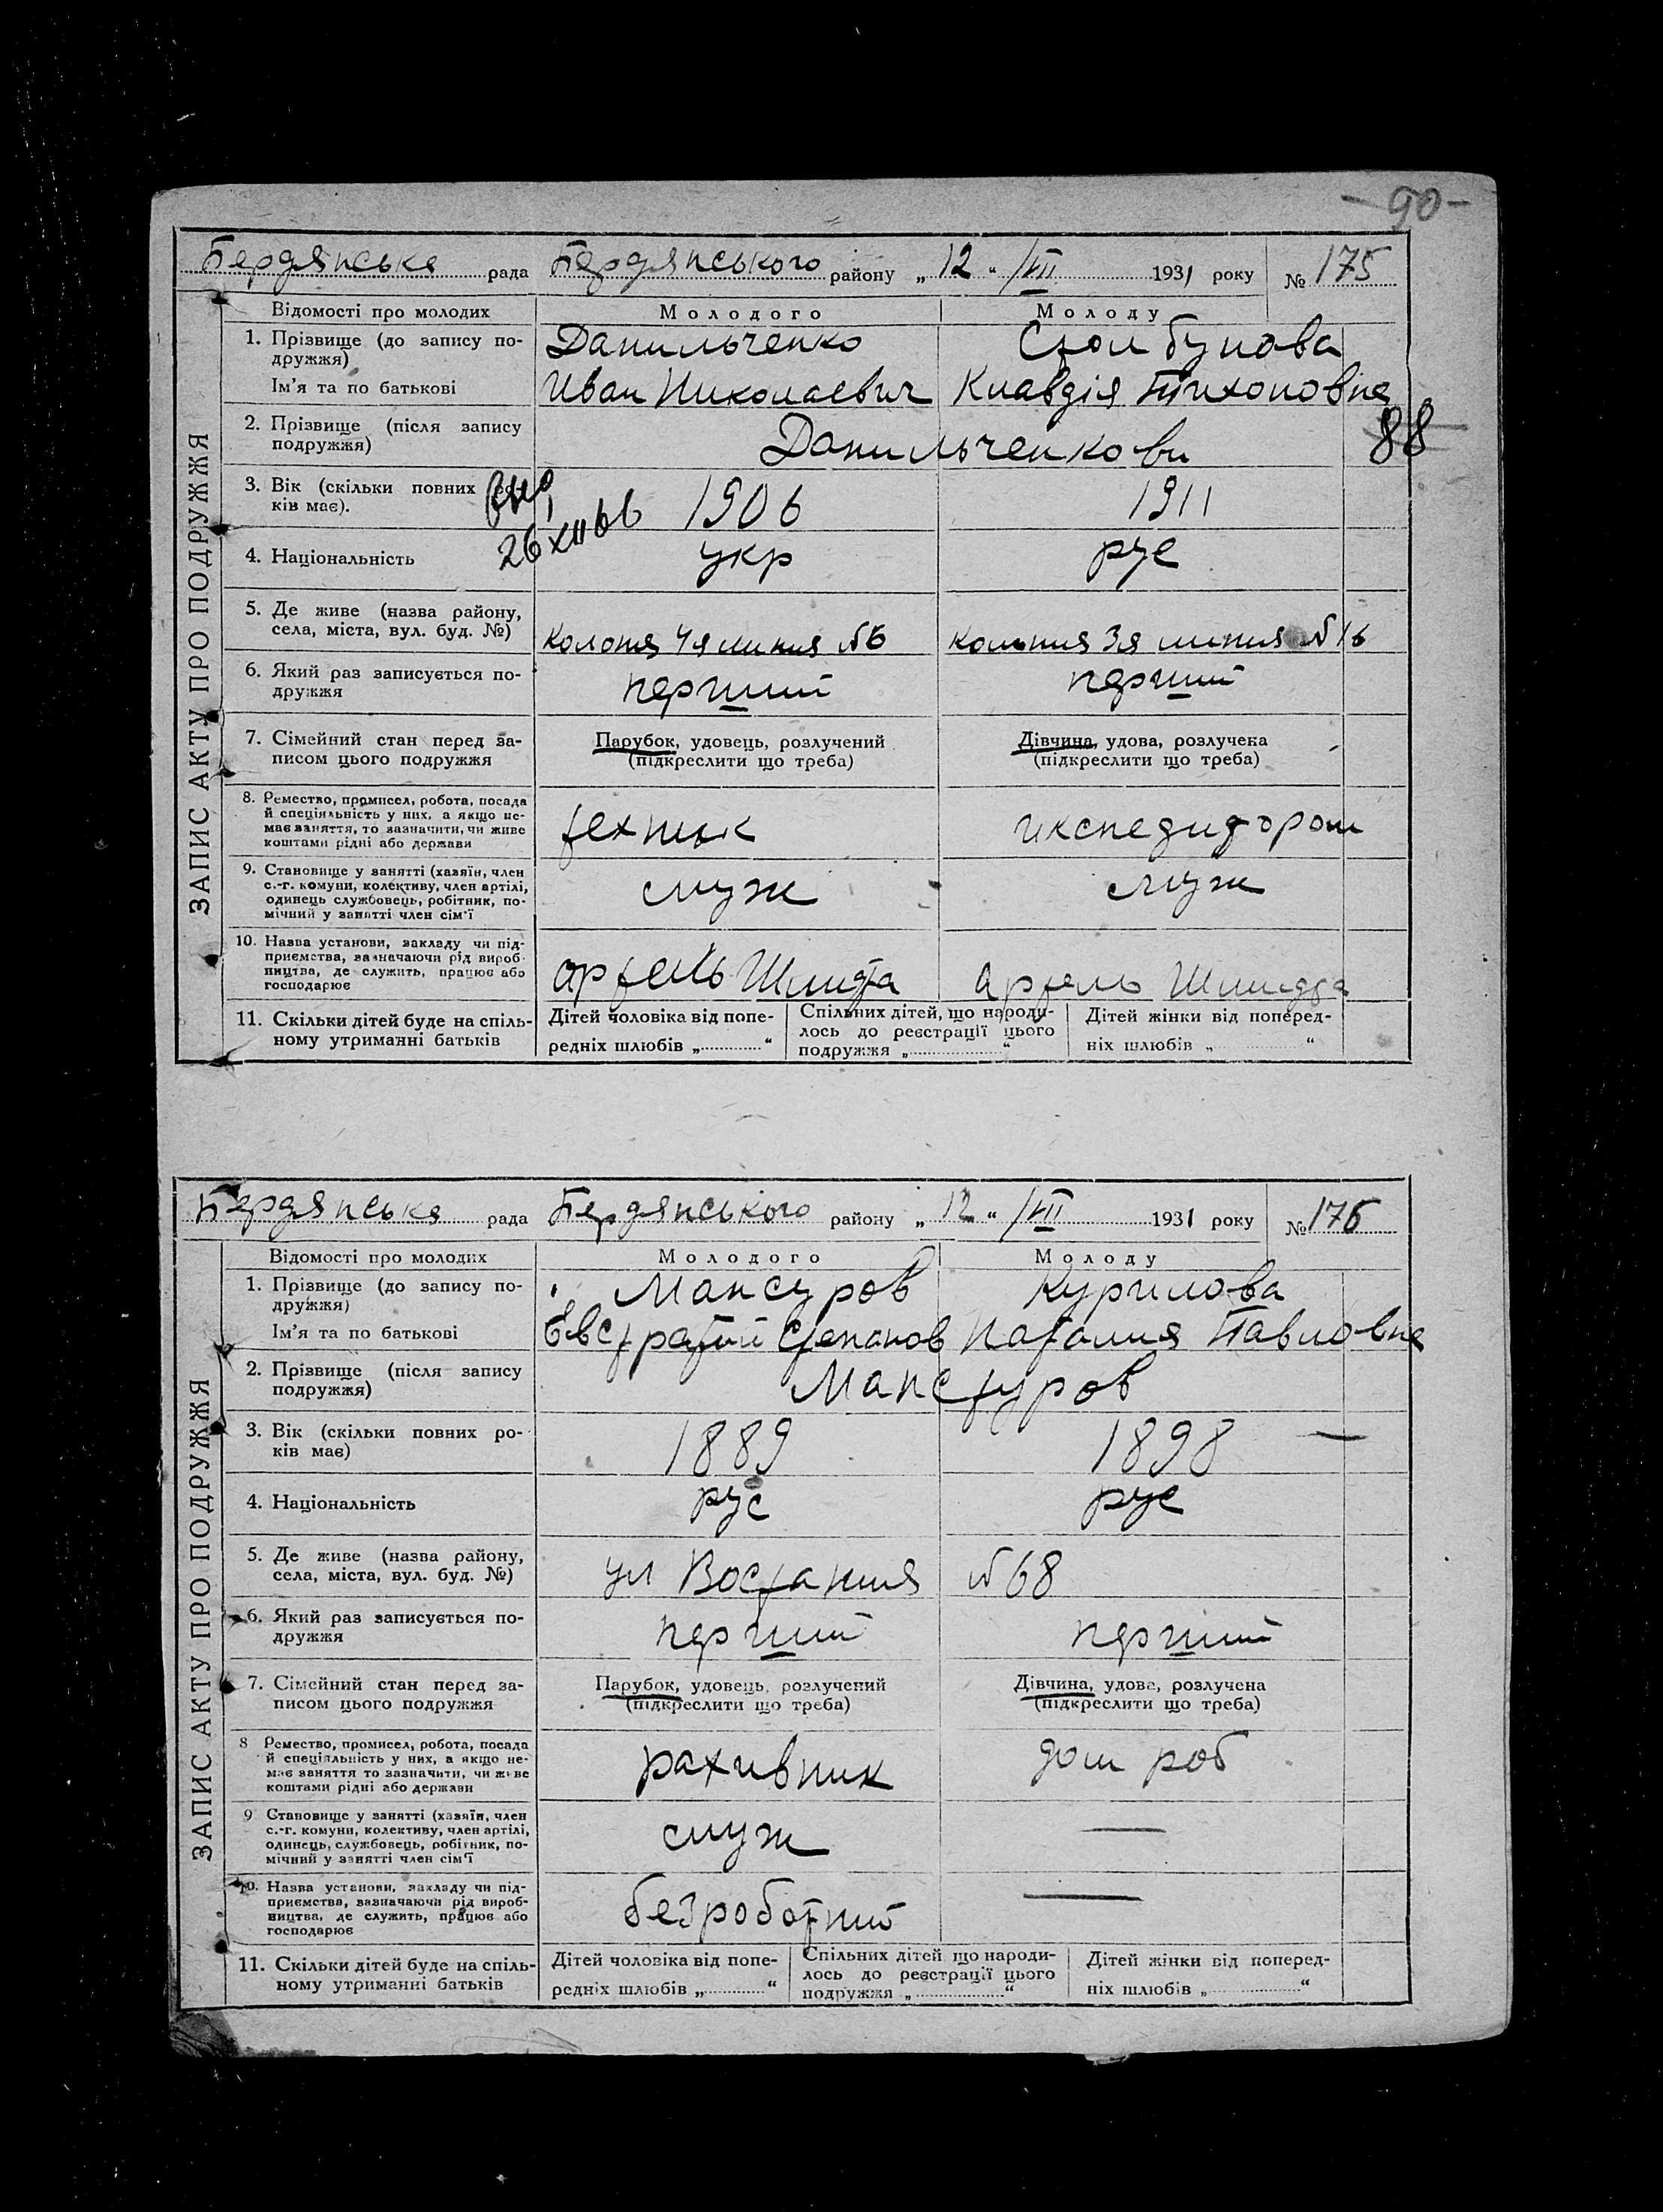 - 90 -
Бердянська рада Бердянського району „ 12 “ VII 1931 року № 175
Відомості про молодих Молодого Молоду
1. Прізвище (до запису по- Данильченко Столбунова
дружжя)
Ім'я та по батькові Иван Николаевич Клавдія Тихоновна
2. Прізвище (після запису Данильченкови 88
подружжя)
3. Вік (скільки повних ро- 1906 1911
ків має).
26 XII 66
4. Національність укр рус
5. Де живе (назва району,
села, міста, вул. буд. №) Колония 4я линия №6 Колония 3я линия №16
6. Який раз записується по- перший перший
дружжя
7. Сімейний стан перед за- Парубок, удовець, розлучений Дівчина, удова, розлучена
писом цього подружжя (підкреслити що треба) (підкреслити що треба)
8. Ремество, промисел, робота, посада
й спеціяльність у них, а якщо не- технік икспедитором
має заняття, то зазначити, чи живе
коштами рідні або держави
9. Становище у занятті (хазяїн, член
с.-г. комуни, колективу, член артілі, служ служ
одинець службовець, робітник, по-
мічний у занятті член сім'ї
10. Назва установи, закладу чи під-
приємства, зазначаючи рід вироб-
ництва, де служить, працює або артель Шмидта артель Шмидта
господарює
11. Скільки дітей буде на спіль- Дітей чоловіка від попе- Спільних дітей, що народи- Дітей жінки від поперед-
ному утриманні батьків редніх шлюбів „ “ лось до реєстрації цього ніх шлюбів „ “
подружжя „ “
ЗАПИС АКТУ ПРО ПОДРУЖЖЯ
Бердянська рада Бердянського району „ 12 “ VII 1931 року № 176
Відомості про молодих Молодого Молоду
1. Прізвище (до запису по- Мансуров Курилова
дружжя)
Ім'я та по батькові Евстратий Степанов Наталия Павловна
2. Прізвище (після запису Мансуров
подружжя)
3. Вік (скільки повних ро- 1889 1898 —
ків має)
4. Національність рус рус
5. Де живе (назва району,
села, міста, вул. буд. №) ул Востания №68
6. Який раз записується по- перший перший
дружжя
7. Сімейний стан перед за- Парубок, удовець, розлучений Дівчина, удова, розлучена
писом цього подружжя (підкреслити що треба) (підкреслити що треба)
8 Ремество, промисел, робота, посада
й спеціяльність у них, а якщо не- рахивник дом роб
має заняття то зазначити, чи живе
коштами рідні або держави
9 Становище у занятті (хазяїн, член
с.-г. комуни, колективу, член артілі, служ —
одинець, службовець, робітник, по-
мічний у занятті член сім'ї
10. Назва установи, закладу чи під-
приємства, зазначаючи рід вироб- безроботний —
ництва, де служить, працює або
господарює
11. Скільки дітей буде на спіль- Дітей чоловіка від попе- Спільних дітей що народи- Дітей жінки від поперед-
ному утриманні батьків редніх шлюбів „ “ лось до реєстрації цього ніх шлюбів „ “
подружжя „ “
ЗАПИС АКТУ ПРО ПОДРУЖЖЯ